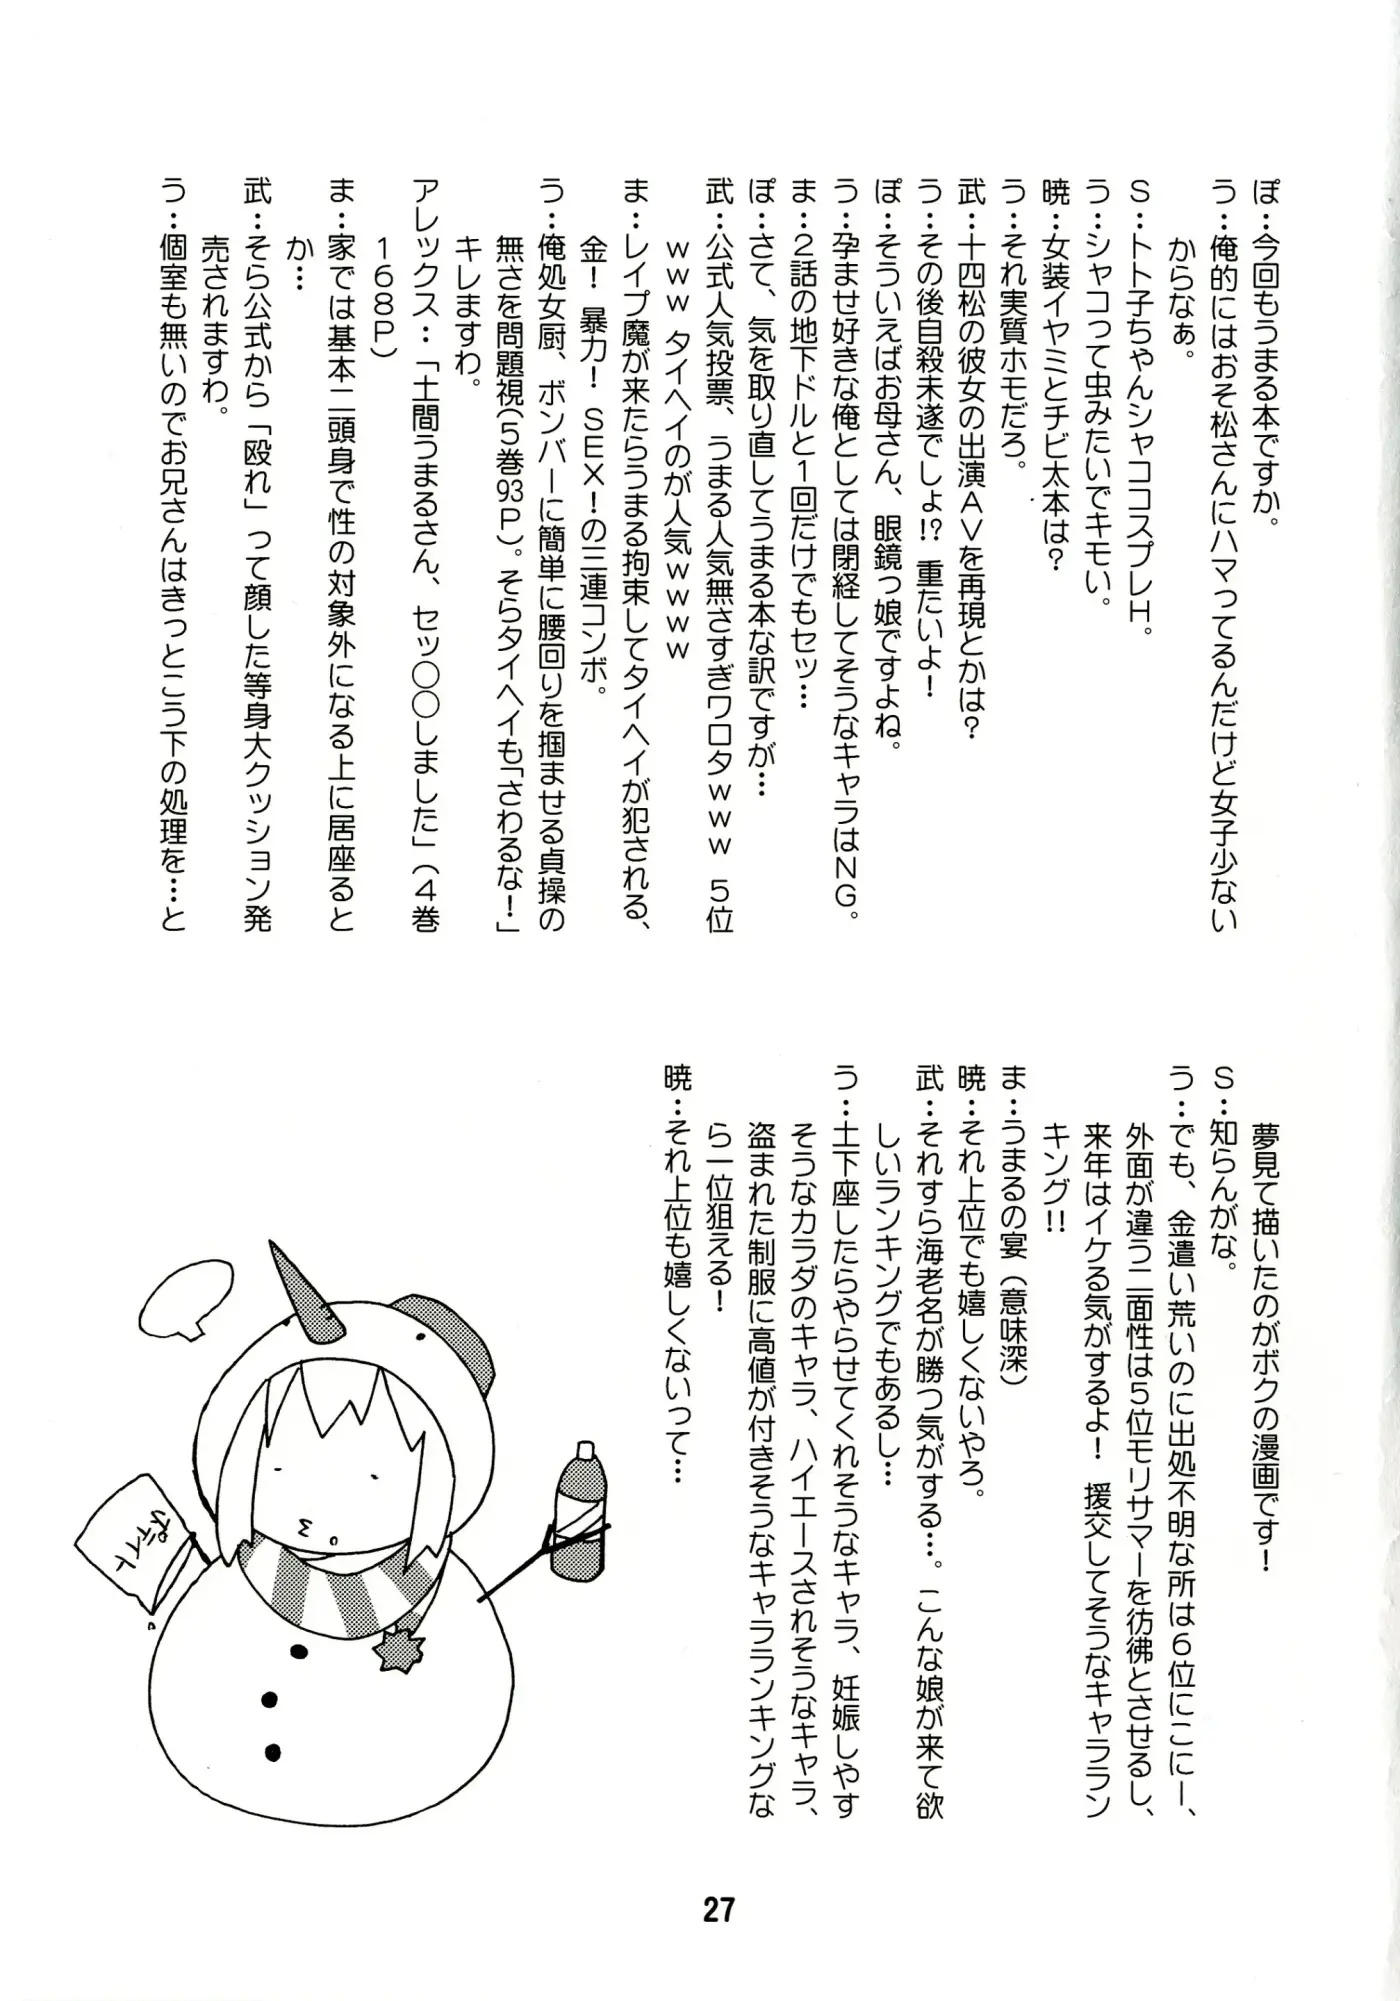 ぽ‥今回もうまる本ですか。
う‥俺的にはおそ松さんにハマってるんだけど女子少ない
からなぁ。
S‥トト子ちゃんシャココスプレH。
う‥シャコって虫みたいでキモい。
暁‥女装イヤミとチビ太本は？
う‥それ実質ホモだろ。
武‥十四松の彼女の出演AVを再現とかは？
う‥その後自殺未遂でしょ!? 重たいよ！
ぽ‥そういえばお母さん、眼鏡っ娘ですよね。
う‥孕ませ好きな俺としては閉経してそうなキャラはNG。
ま‥2話の地下ドルと1回だけでもセッ…
ぽ‥さて、気を取り直してうまる本な訳ですが…
武‥公式人気投票、うまる人気無さすぎワロタｗｗｗ 5位
ｗｗｗ タイヘイのが人気ｗｗｗｗ
ま‥レイプ魔が来たらうまる拘束してタイヘイが犯される、
金！ 暴力！ SEX！の三連コンボ。
う‥俺処女厨、ボンバーに簡単に腰回りを掴ませる貞操の
無さを問題視(5巻93P)。そらタイヘイも「さわるな！」
キレますわ。
アレックス‥「土間うまるさん、セッ〇〇しました」(4巻
168P)
ま‥家では基本二頭身で性の対象外になる上に居座ると
か…
武‥そら公式から「殴れ」って顔した等身大クッション発
売されますわ。
う‥個室も無いのでお兄さんはきっとこう下の処理を…と
夢見て描いたのがボクの漫画です！
S‥知らんがな。
う‥でも、金遣い荒いのに出処不明な所は6位にこにー、
外面が違う二面性は5位モリサマーを彷彿とさせるし、
来年はイケる気がするよ！ 援交してそうなキャララン
キング!!
ま‥うまるの宴（意味深）
暁‥それ上位でも嬉しくないやろ。
武‥それすら海老名が勝つ気がする…。こんな娘が来て欲
しいランキングでもあるし…
う‥土下座したらやらせてくれそうなキャラ、妊娠しやす
そうなカラダのキャラ、ハイエースされそうなキャラ、
盗まれた制服に高値が付きそうなキャラランキングな
ら一位狙える！
暁‥それ上位も嬉しくないって…
ポテイト
27